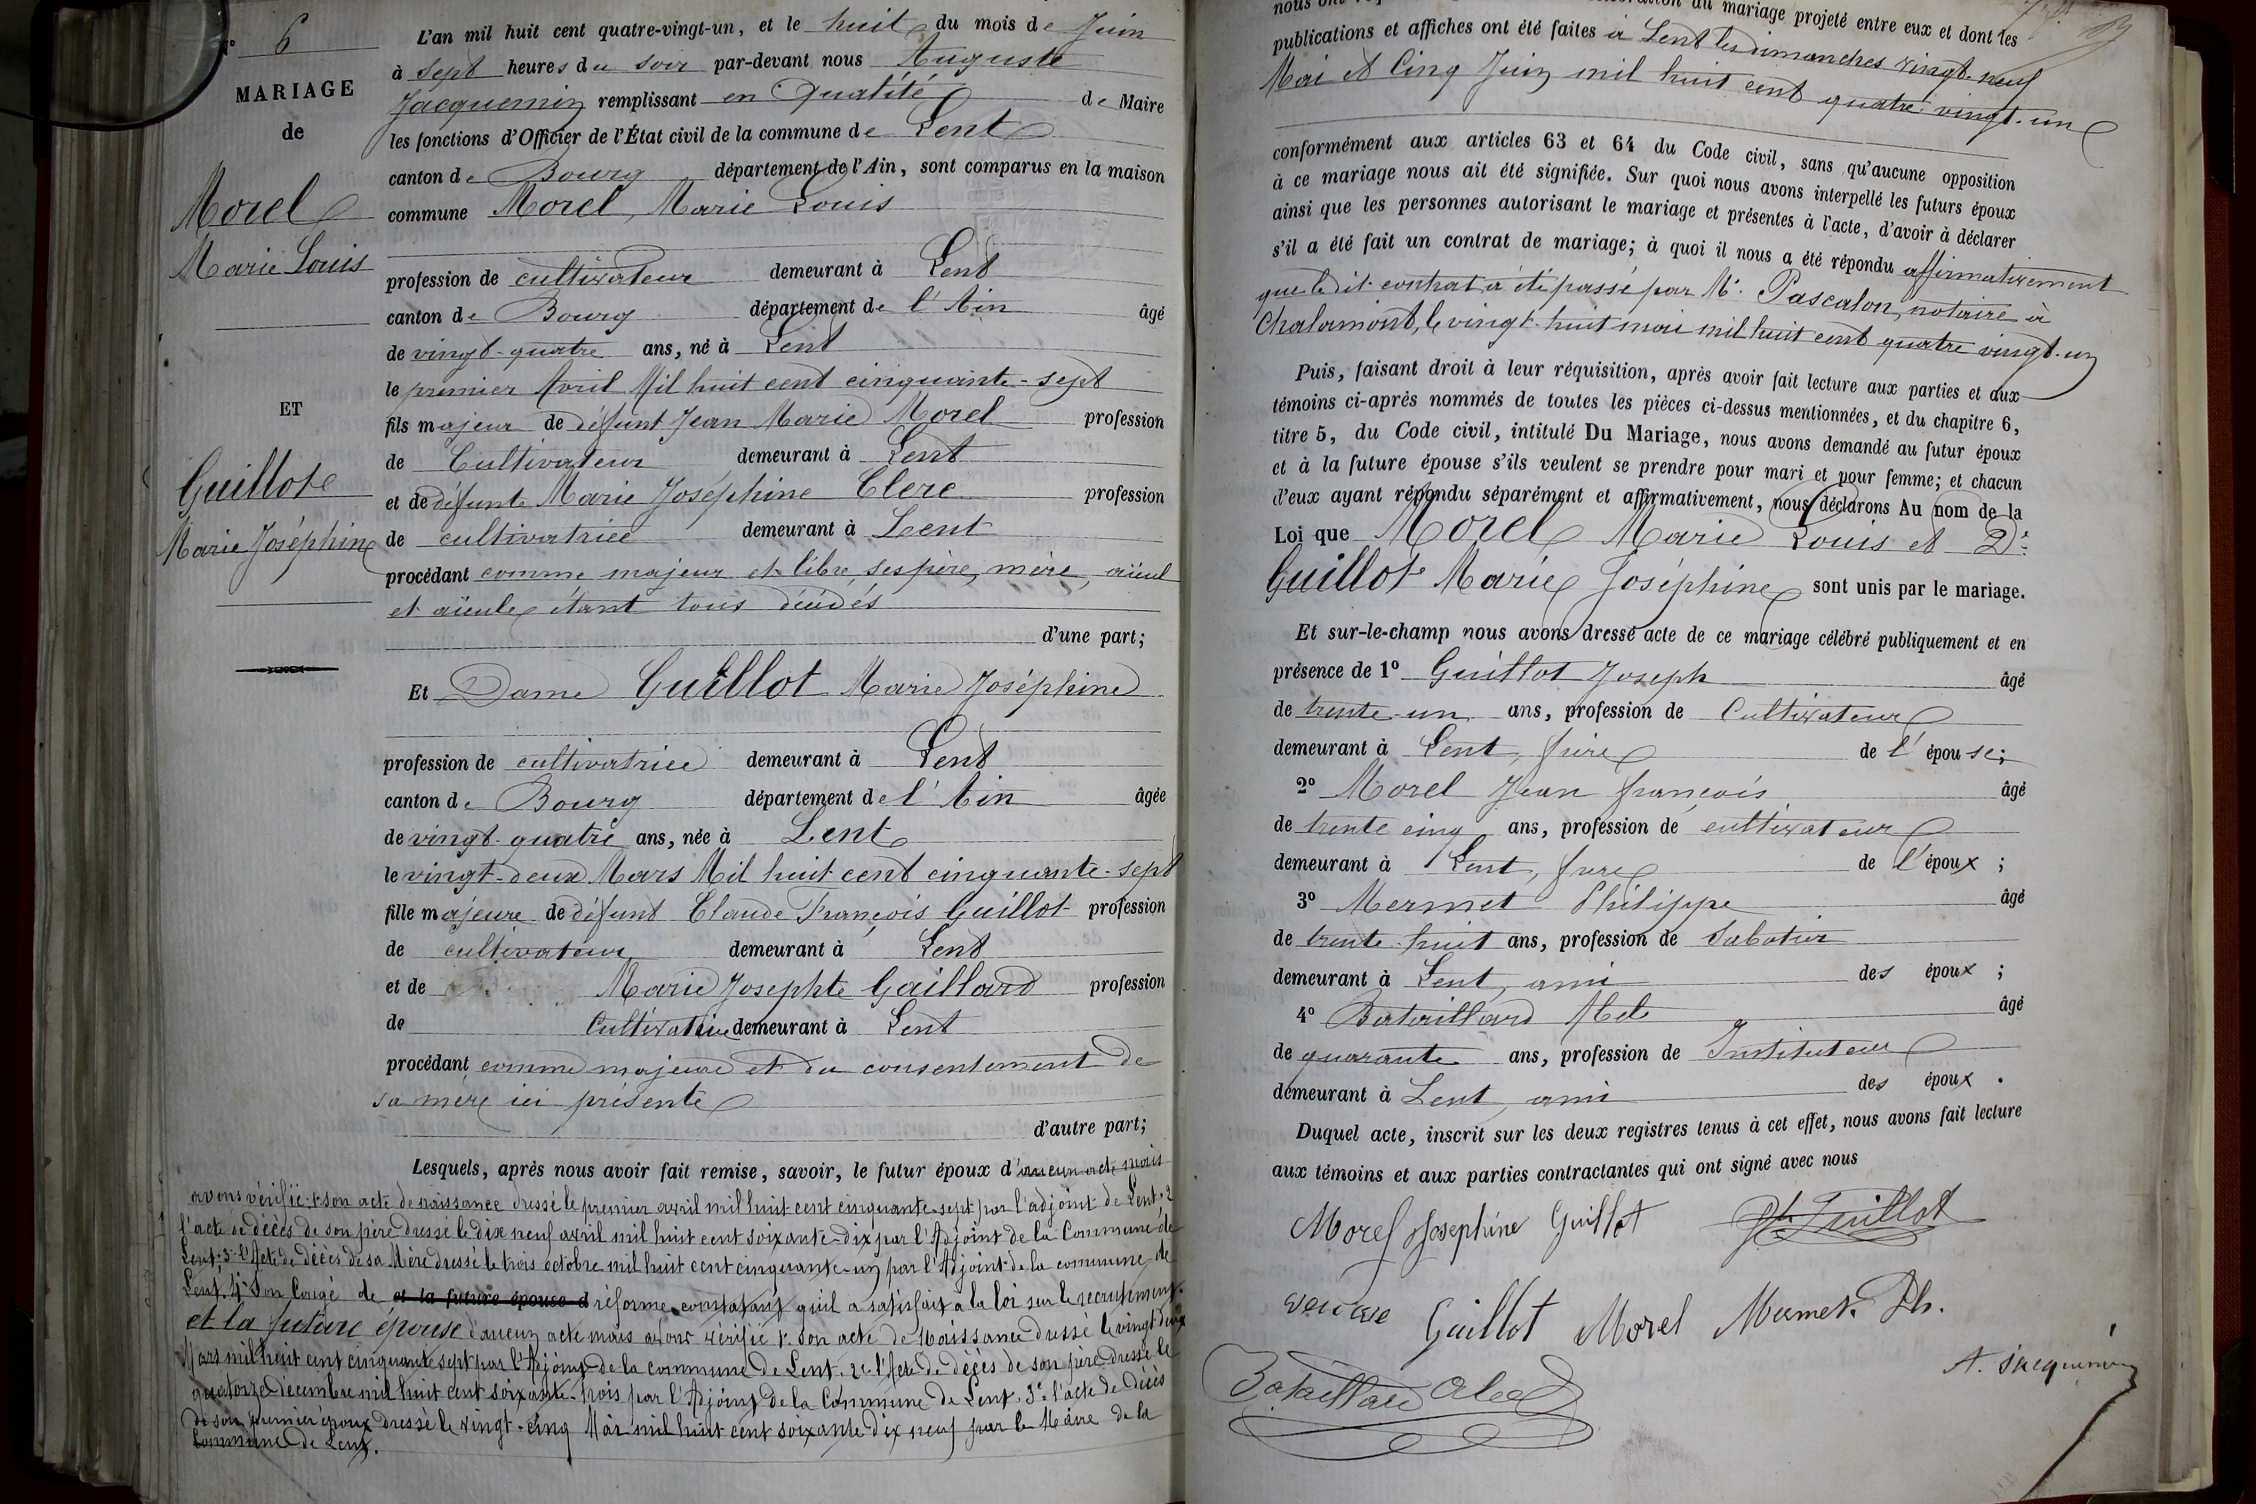 N° 6
MARIAGE
de
Morel
Marie Louis
ET
Guillot
Marie Joséphine
L'an mil huit cent quatre-vingt-un, et le huit du mois de Juin
à sept heures du soir par-devant nous Auguste
Jacquemin remplissant en Qualité de Maire
les fonctions d'Officier de l'État civil de la commune de Lent
canton de Bourg département de l'Ain, sont comparus en la maison
commune Morel, Marie Louis
profession de cultivateur demeurant à Lent
canton de Bourg département de l'Ain âgé
de vingt-quatre ans, né à Lent
le premier Avril Mil huit cent cinquante-sept
fils majeur de défunt Jean Marie Morel profession
de Cultivateur demeurant à Lent
et de défunte Marie Joséphine Clerc profession
de cultivatrice demeurant à Lent
procédant comme majeur et libre, ses père, mère, aïeul
et aïeule étant tous décédés
d'une part;
Et Dame Guillot Marie Joséphine
profession de cultivatrice demeurant à Lent
canton de Bourg département de l'Ain âgée
de vingt-quatre ans, née à Lent
le vingt-deux Mars Mil huit cent cinquante-sept
fille majeure de défunt Claude François Guillot profession
de cultivateur demeurant à Lent
et de Marie Josephte Gaillard profession
de Cultivatrice demeurant à Lent
procédant comme majeure et du consentement de
sa mère ici présente
d'autre part;
Lesquels, après nous avoir fait remise, savoir, le futur époux d'aucun acte mais
avons vérifié 1° son acte de naissance dressé le premier avril mil huit cent cinquante-sept par l'adjoint de Lent, 2°
l'acte de décès de son père dressé le dix neuf avril mil huit cent soixante-dix par l'Adjoint de la Commune de
Lent; 3° l'Acte de décès de sa Mère dressé le trois octobre mil huit cent cinquante-un par l'Adjoint de la commune de
Lent. 4° Son Congé de et la future épouse d réforme constatant qu'il a satisfait à la loi sur le recrutement.
et la future épouse d'aucun acte mais avons vérifié 1° son acte de Naissance dressé le vingt deux
Mars mil huit cent cinquante sept par l'Adjoint de la commune de Lent. 2° l'Acte de décès de son père dressé le
quatorze décembre mil huit cent soixante-trois par l'Adjoint de la Commune de Lent. 3° l'acte de décès
de son premier époux dressé le vingt-cinq Mai mil huit cent soixante-dix neuf par le Maire de la
Commune de Lent.
publications et affiches ont été faites à Lent les dimanches vingt-neuf
Mai et Cinq Juin mil huit cent quatre-vingt-un
conformément aux articles 63 et 64 du Code civil, sans qu'aucune opposition
à ce mariage nous ait été signifiée. Sur quoi nous avons interpellé les futurs époux
ainsi que les personnes autorisant le mariage et présentes à l'acte, d'avoir à déclarer
s'il a été fait un contrat de mariage; à quoi il nous a été répondu affirmativement
que ledit contrat a été passé par Me. Pascalon, notaire à
Chalamont, le vingt-huit mai mil huit cent quatre vingt-un
Puis, faisant droit à leur réquisition, après avoir fait lecture aux parties et aux
témoins ci-après nommés de toutes les pièces ci-dessus mentionnées, et du chapitre 6,
titre 5, du Code civil, intitulé Du Mariage, nous avons demandé au futur époux
et à la future épouse s'ils veulent se prendre pour mari et pour femme; et chacun
d'eux ayant répondu séparément et affirmativement, nous déclarons Au nom de la
Loi que Morel Marie Louis et De
Guillot Marie Joséphine sont unis par le mariage.
Et sur-le-champ nous avons dressé acte de ce mariage célébré publiquement et en
présence de 1° Guillot Joseph âgé
de trente-un ans, profession de Cultivateur
demeurant à Lent, frère de l'épouse;
2° Morel Jean François âgé
de trente cinq ans, profession de cultivateur
demeurant à Lent, frère de l'époux;
3° Mermet Philippe âgé
de trente-huit ans, profession de Sabotier
demeurant à Lent, ami des époux;
4° Bataillard Abel âgé
de quarante ans, profession de Instituteur
demeurant à Lent, ami des époux.
Duquel acte, inscrit sur les deux registres tenus à cet effet, nous avons fait lecture
aux témoins et aux parties contractantes qui ont signé avec nous
Morel Josephine Guillot Guillot
veuve Guillot Morel Mermet Ph.
Bataillard Abel A. Jacquemin